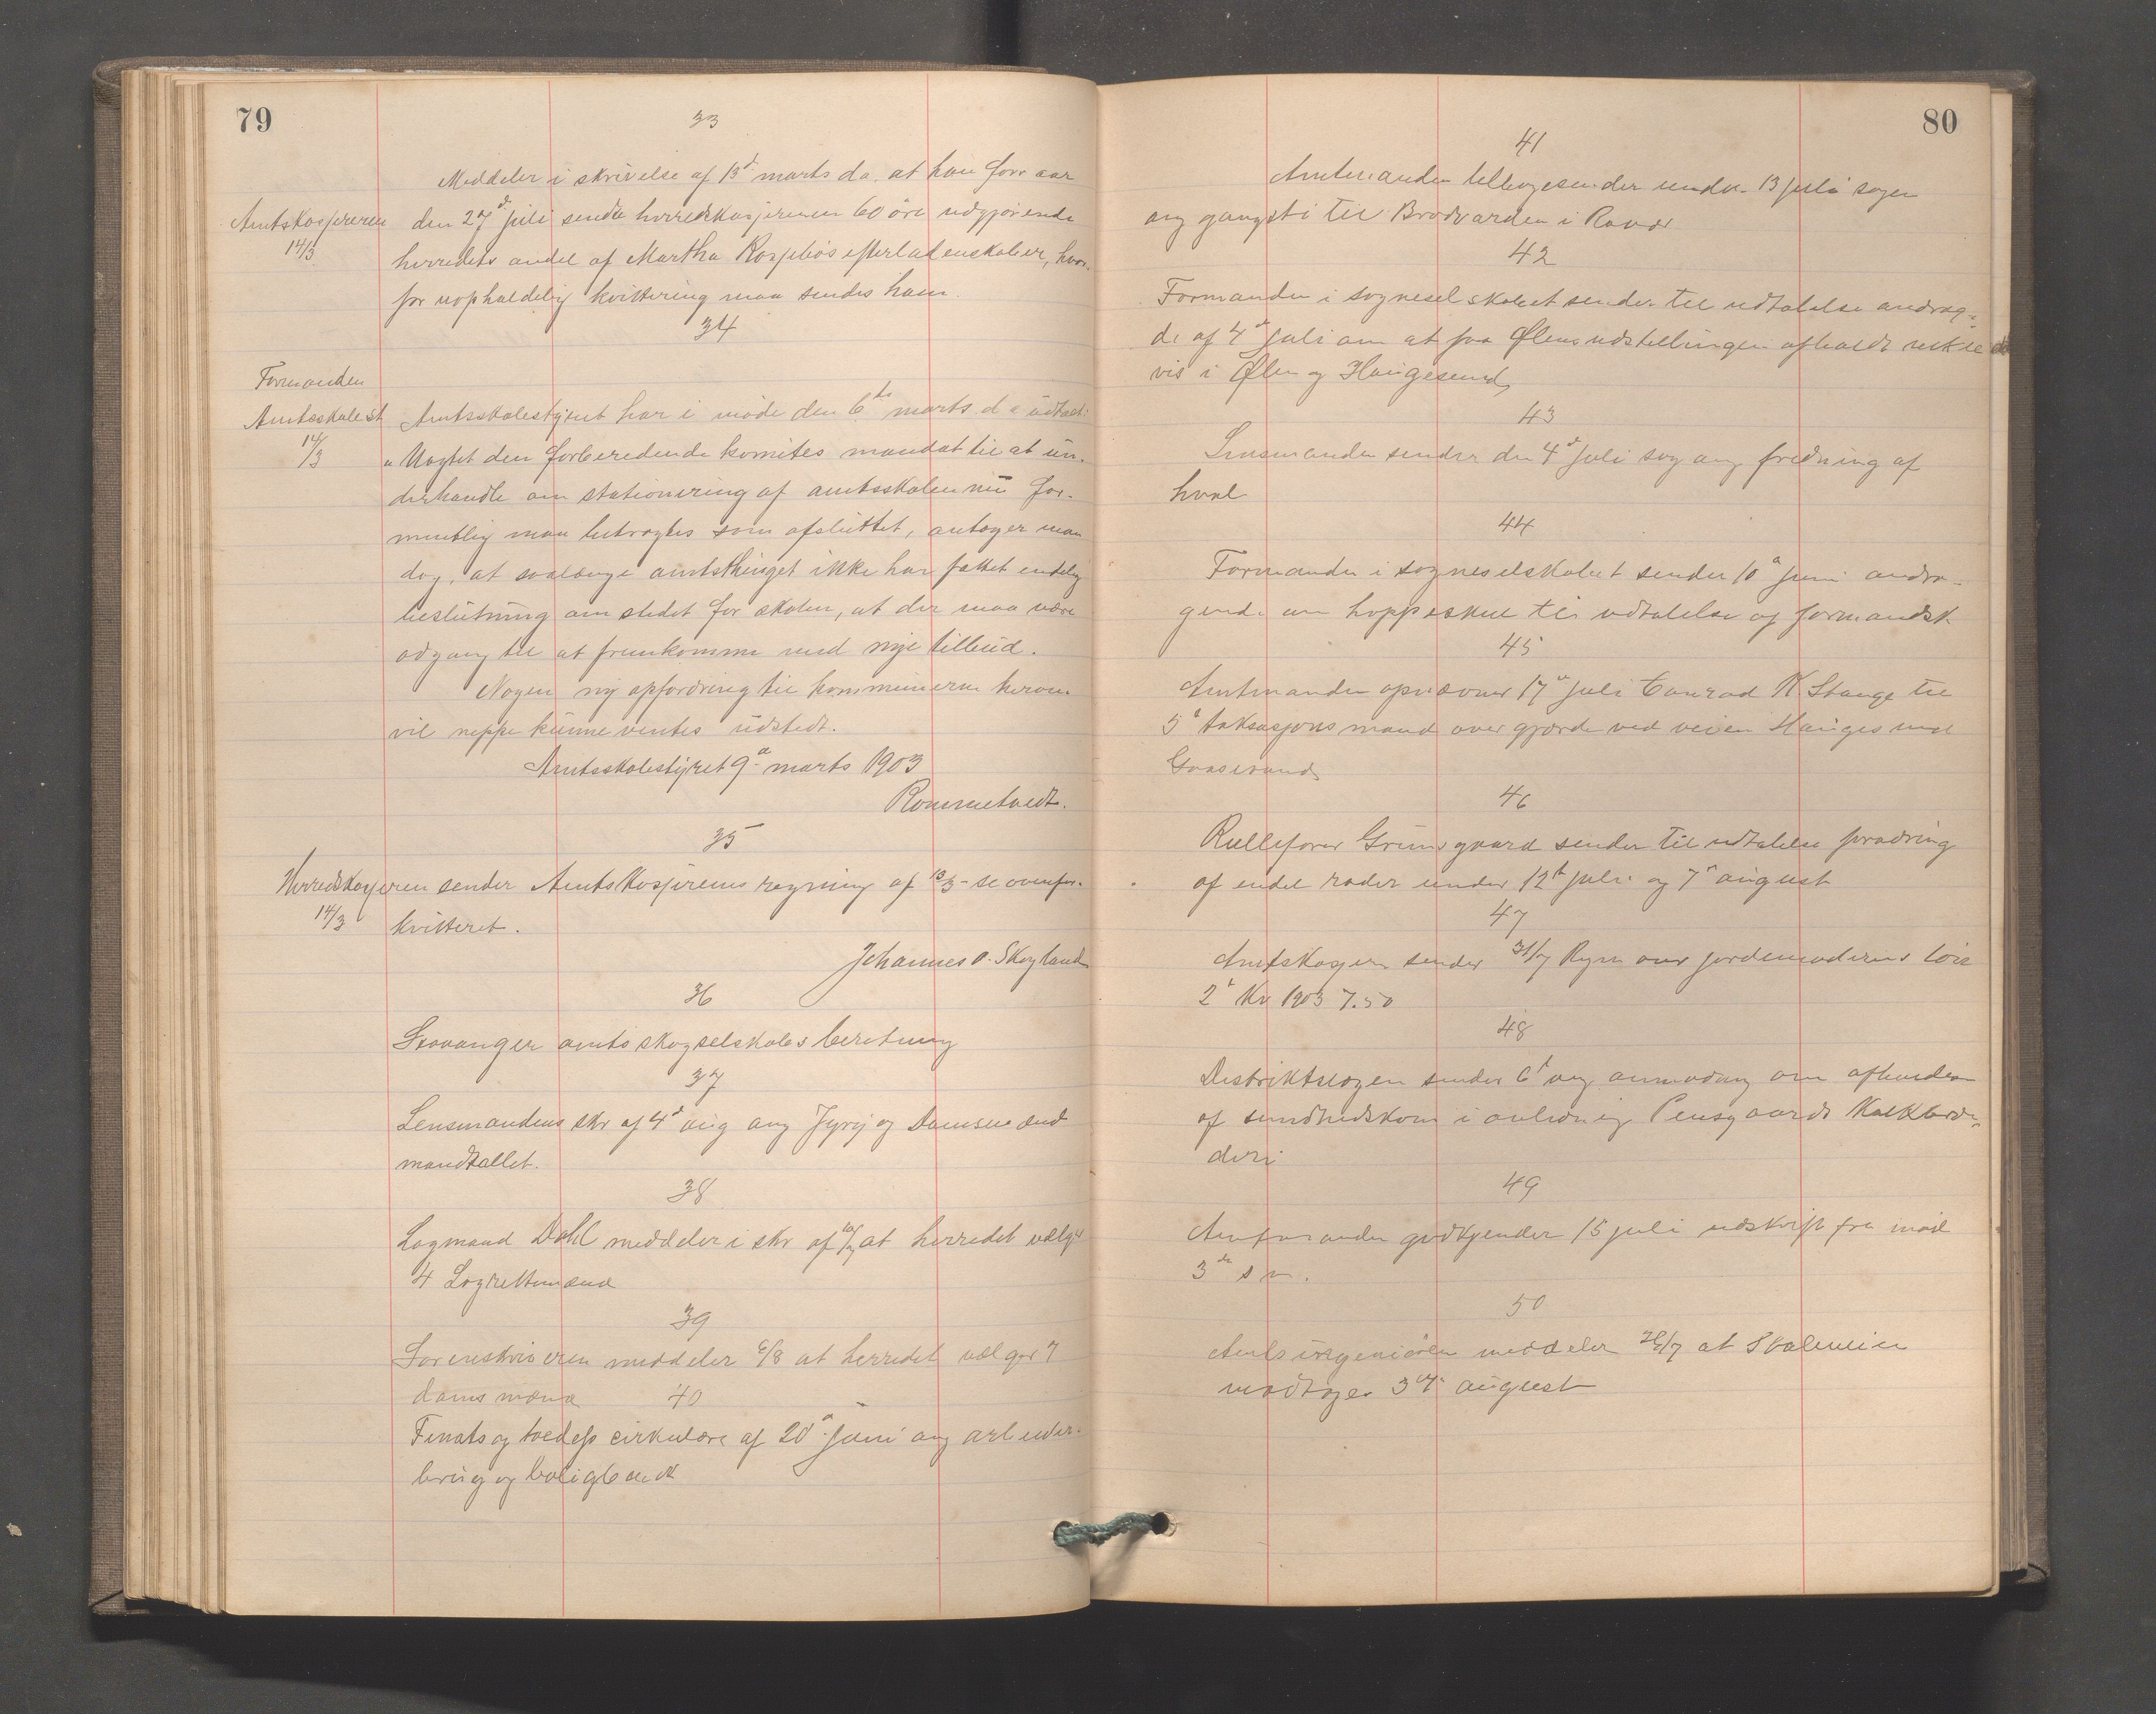 79
33
Meddeler i skrivelse af 13d marts d.a. at han forr aar
Amtskasjereren den 27de juli sendte herredskasjereren 60 öre udgjörende
14/3 herredets andel af Martha Rosjebös efterladenskaber, hvor-
for uopholdelig kvittering maa sendes ham.
34
Formanden
Amtsskolest. Amtsskolestyret har i möde den 6te marts d.a. udtalt:
14/3 „Uagtet den forberedende komites mandat til at un-
derhandle om stationering af amtsskolen nu for-
mentlig maa betragtes som afsluttet, antager man
dog, at saalænge amtsthinget ikke har fattet endelig
beslutning om stedet for skolen, at der maa være
adgang til at fremkomme med nye tilbud.
Nogen ny opfordring til kommunerne herom
vil neppe kunne ventes udstedt.
Amtsskolestyret 9d marts 1903
Rommetvedt.
35
Herredskasjereren sender Amtskasjerens regning af 13/3 - se ovenfor-
14/3 kvitteret.
Johannes O. Skogland
36
Stavanger amts skogselskabs beretning
37
Lensmandens skr af 4d aug ang Jury og Domsmænd
mandtallet.
38
Lagmand Dahl meddeler i skr af at herredet vælger
4 Lagrettemænd
39
Sorenskriveren meddeler 6/8 at herredet vælger 7
doms mænd
40
Finats og toldeps cirkulære af 20d juni ang arbeider-
brug og boligbank
80
41
Amtmanden tilbagesender under 13 juli sagen
ang gangsti til Brodvarden i Rövær
42
Formanden i sogneselskabet sender til udtalelse andrag-
de af 4d juli om at faa Ølensudstillingen afholdt vexle
vis i Ølen og Haugesund
43
Lensmanden sender den 4d juli sag ang fredning af
hval
44
Formanden i sogneselskabet sender 10d juni andra-
gende om hoppeskue til udtalelse af formandsk
45
Amtmanden opnævner 17d juli Conrad K. Stange til
3d taksasjonsmand over gjærde ved veien Haugesund
46
Rullefører Grimsgaard sender til udtalelse forandring
af endel roder under 12te juli og 7d august
47
Amtskasjern sender 31/7 Regn over jordemoderens lön
2d Kv 1903 7.50
48
Distriktslægen sender 6d aug anmodning om afholdelse
af sundhedskom i anledning Pensgaards Kalkbræn-
deri
49
Amtmanden godkjender 15 juli udskrift fra möde
3de s m.
50
Amtsingeniören meddeler at Skaleveien
modtages august